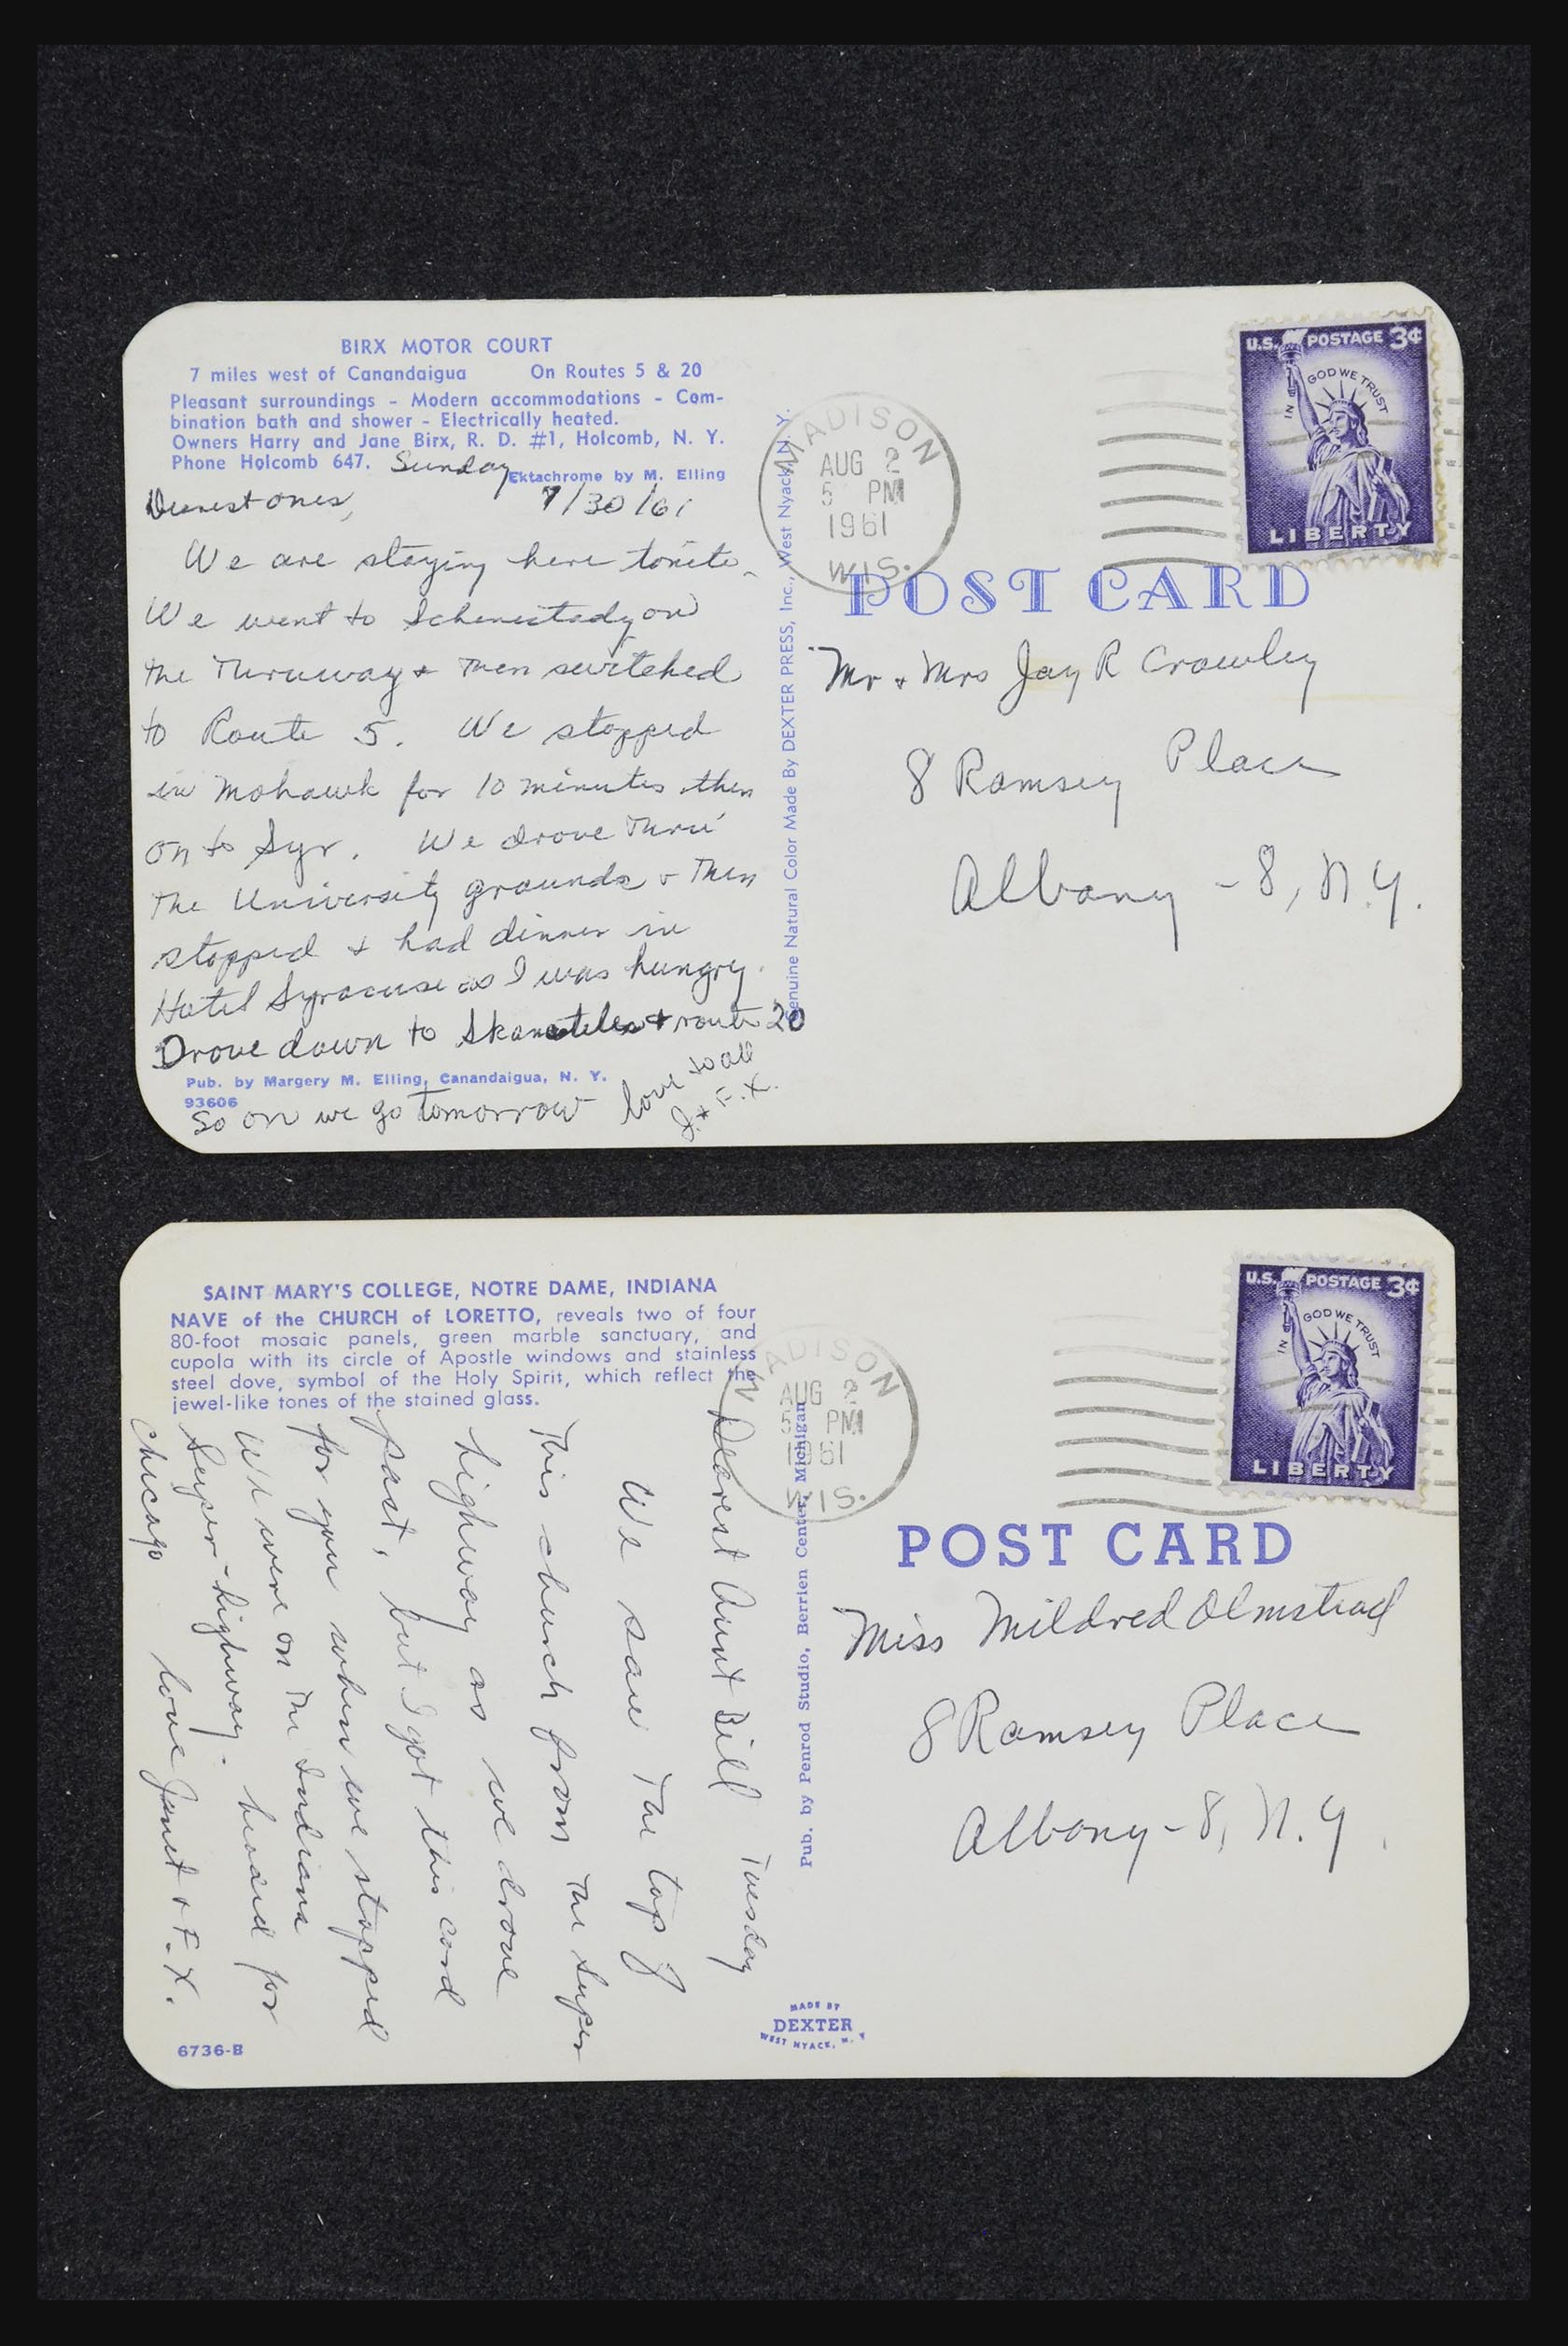 BIRX MOTOR COURT
7 miles west of Canandaigua On Routes 5 & 20
Pleasant surroundings - Modern accommodations - Com-
bination bath and shower - Electrically heated.
Owners Harry and Jane Birx, R. D. #1, Holcomb, N. Y.
Phone Holcomb 647.
Ektachrome by M. Elling
Sunday
7/30/61
Dearest ones,
We are staying here tonite.
We went to Schenectady on
the Thruway & then switched
to Route 5. We stopped
in Mohawk for 10 minutes then
on to Syr. We drove thru
the University grounds & then
stopped & had dinner in
Hotel Syracuse as I was hungry.
Drove down to Skaneateles & route 20
Pub. by Margery M. Elling, Canandaigua, N. Y.
93606
So on we go tomorrow
love to all
J. & F.X.
Genuine Natural Color Made By DEXTER PRESS, Inc., West Nyack, N. Y.
MADISON
AUG 2
5 PM
1961
WIS.
U.S. POSTAGE 3¢
IN GOD WE TRUST
LIBERTY
POST CARD
Mr & Mrs Jay R Crowley
8 Ramsey Place
Albany - 8, N.Y.
SAINT MARY'S COLLEGE, NOTRE DAME, INDIANA
NAVE of the CHURCH of LORETTO, reveals two of four
80-foot mosaic panels, green marble sanctuary, and
cupola with its circle of Apostle windows and stainless
steel dove, symbol of the Holy Spirit, which reflect the
jewel-like tones of the stained glass.
Tuesday
Dearest Aunt Bill
We saw the top of
this church from the super
highway as we drove
past, but I got this card
for you when we stopped
We were on the Indiana
Super-highway - head for
Chicago love Janet & F.X.
6736-B
Pub. by Penrod Studio, Berrien Center, Michigan
MADE BY
DEXTER
WEST NYACK, N. Y.
MADISON
AUG 2
5 PM
1961
WIS.
U.S. POSTAGE 3¢
IN GOD WE TRUST
LIBERTY
POST CARD
Miss Mildred Olmstead
8 Ramsey Place
Albany - 8, N.Y.